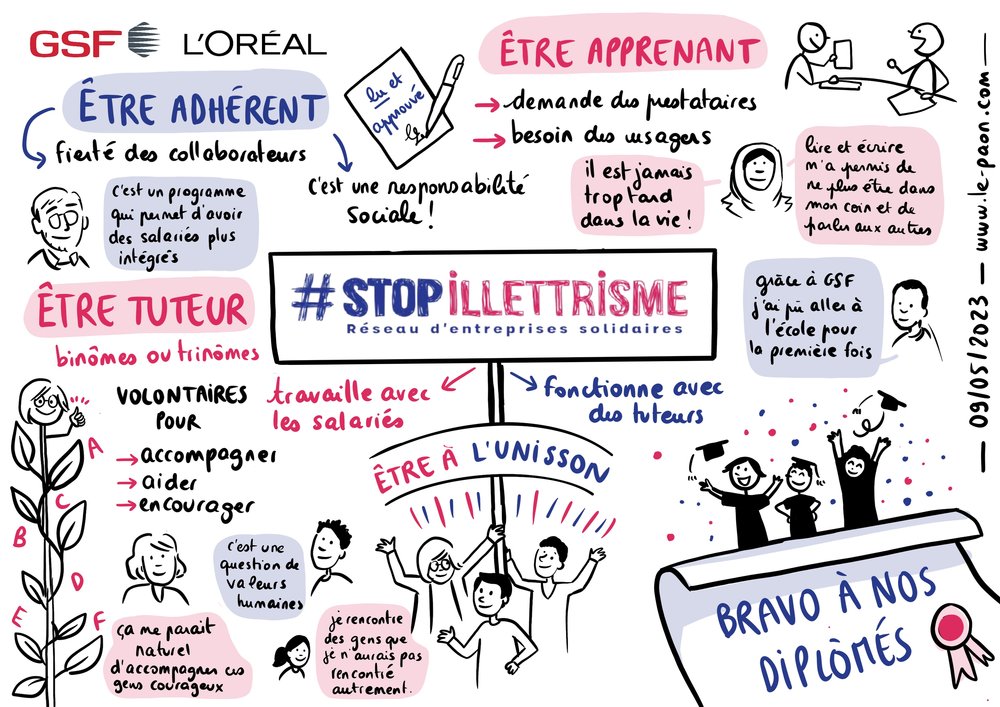 GSF L'ORÉAL
ÊTRE ADHÉRENT
fierté des collaborateurs
c'est un programme
qui permet d'avoir
des salariés plus
intégrés
lu et
approuvé
c'est une responsabilité
sociale !
ÊTRE APPRENANT
→ demande des prestataires
→ besoin des usagers
il est jamais
trop tard
dans la vie !
lire et écrire
m'a permis de
ne plus être dans
mon coin et de
parler aux autres
grâce à GSF
j'ai pû aller à
l'école pour
la première fois
— 09/05/2023 — www.le-paon.com —
#STOPiLLETTRiSME
Réseau d'entreprises solidaires
travaille avec
les salariés
fonctionne avec
des tuteurs
ÊTRE À L'UNISSON
ÊTRE TUTEUR
binômes ou trinômes
VOLONTAIRES
POUR
→ accompagner
→ aider
→ encourager
A
C
B
D
E
F
ça me paraît
naturel
d'accompagner ces
gens courageux
c'est une
question de
valeurs
humaines
je rencontre
des gens que
je n'aurais pas
rencontré
autrement.
BRAVO À NOS
DIPLÔMÉS